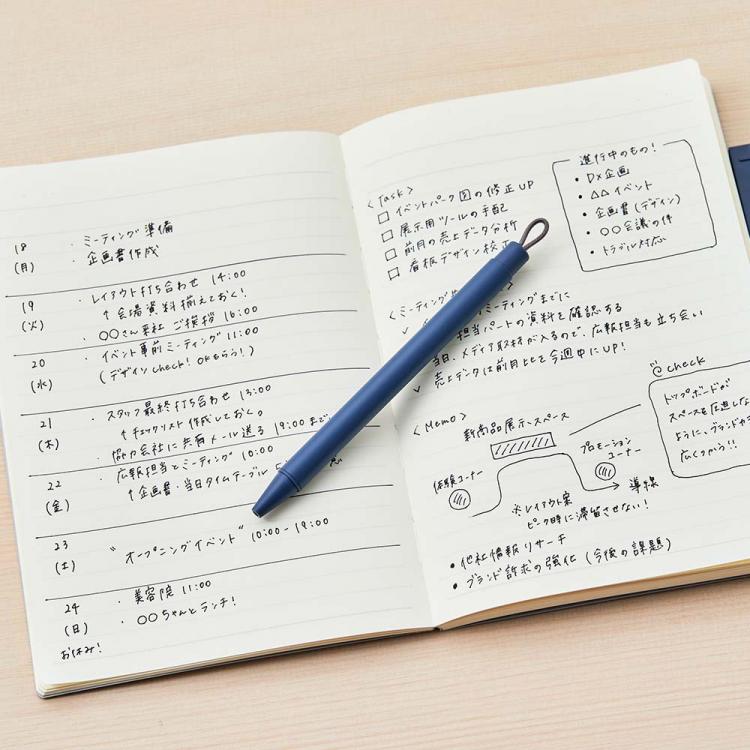 18
(月)
・ミーティング準備
・企画書作成
19
(火)
・レイアウト打ち合わせ 14:00
↑会場資料揃えておく!
・○○さん来社 ご挨拶 16:00
20
(水)
・イベント事前ミーティング 11:00
(デザインcheck! OKもらう!)
21
(木)
・スタッフ最終打ち合わせ 13:00
↑チェックリスト作成しておく。
・協力会社に共有メール送る 19:00まで
22
(金)
・広報担当とミーティング 10:00
↑企画書・当日タイムテーブル
23
(土)
"オープニングイベント" 10:00-19:00
24
(日)
・美容院 11:00
・○○ちゃんとランチ!
お休み!
<Task>
□ イベントパーク図の修正UP
□ 展示用ツールの手配
□ 前月の売上データ分析
□ 看板デザイン校
進行中のもの!
・DX企画
・△△イベント
・企画書(デザイン)
・○○会議の件
・トラブル対応
<ミーティング
ミーティングまでに
担当パートの資料を確認する
当日、メディア取材が入るので、広報担当も立ち会い
✓ 売上データは前月比とを今週中にUP!
<Memo>
新商品展示スペース
体験コーナー
プロモーション
コーナー
→ 導線
※レイアウト案
ピーク時に滞留させない!
check
トップボードが
スペースを圧迫しな
ように、ブランドカ
広くつかう!!
・他社情報リサーチ
・ブランド訴求の強化(今後の課題)